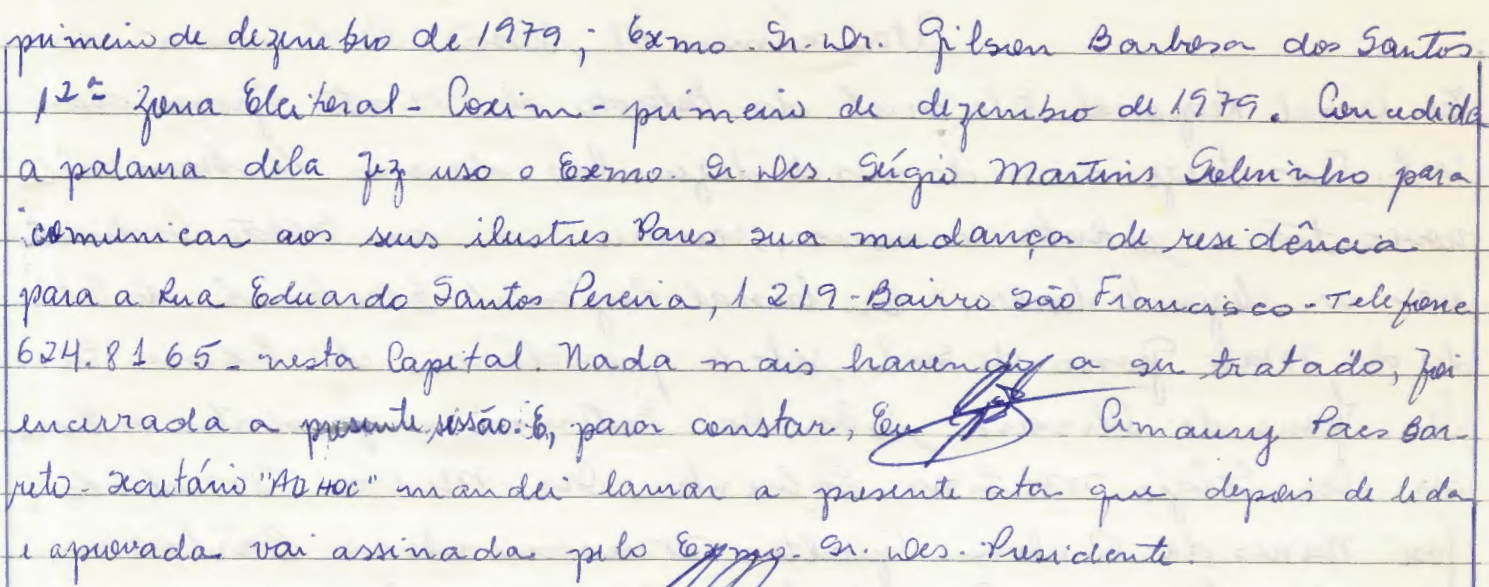 primeiro de dezembro de 1979; Exmo. Sr. Dr. Gilson Barbosa dos Santos
12ª Zona Eleitoral - Coxim - primeiro de dezembro de 1979. Concedida
a palavra dela fez uso o Exmo. Sr. Des. Sérgio Martins Sobrinho para
comunicar aos seus ilustres Pares sua mudança de residência
para a Rua Eduardo Santos Pereira, 1219 - Bairro São Francisco - Telefone
624.8165 - nesta Capital. Nada mais havendo a ser tratado, foi
encerrada a presente sessão. E, para constar, Eu Amaury Paes Bar-
reto - Secretário "AD HOC" mandei lavrar a presente ata que depois de lida
e aprovada vai assinada pelo Exmo. Sr. Des. Presidente.